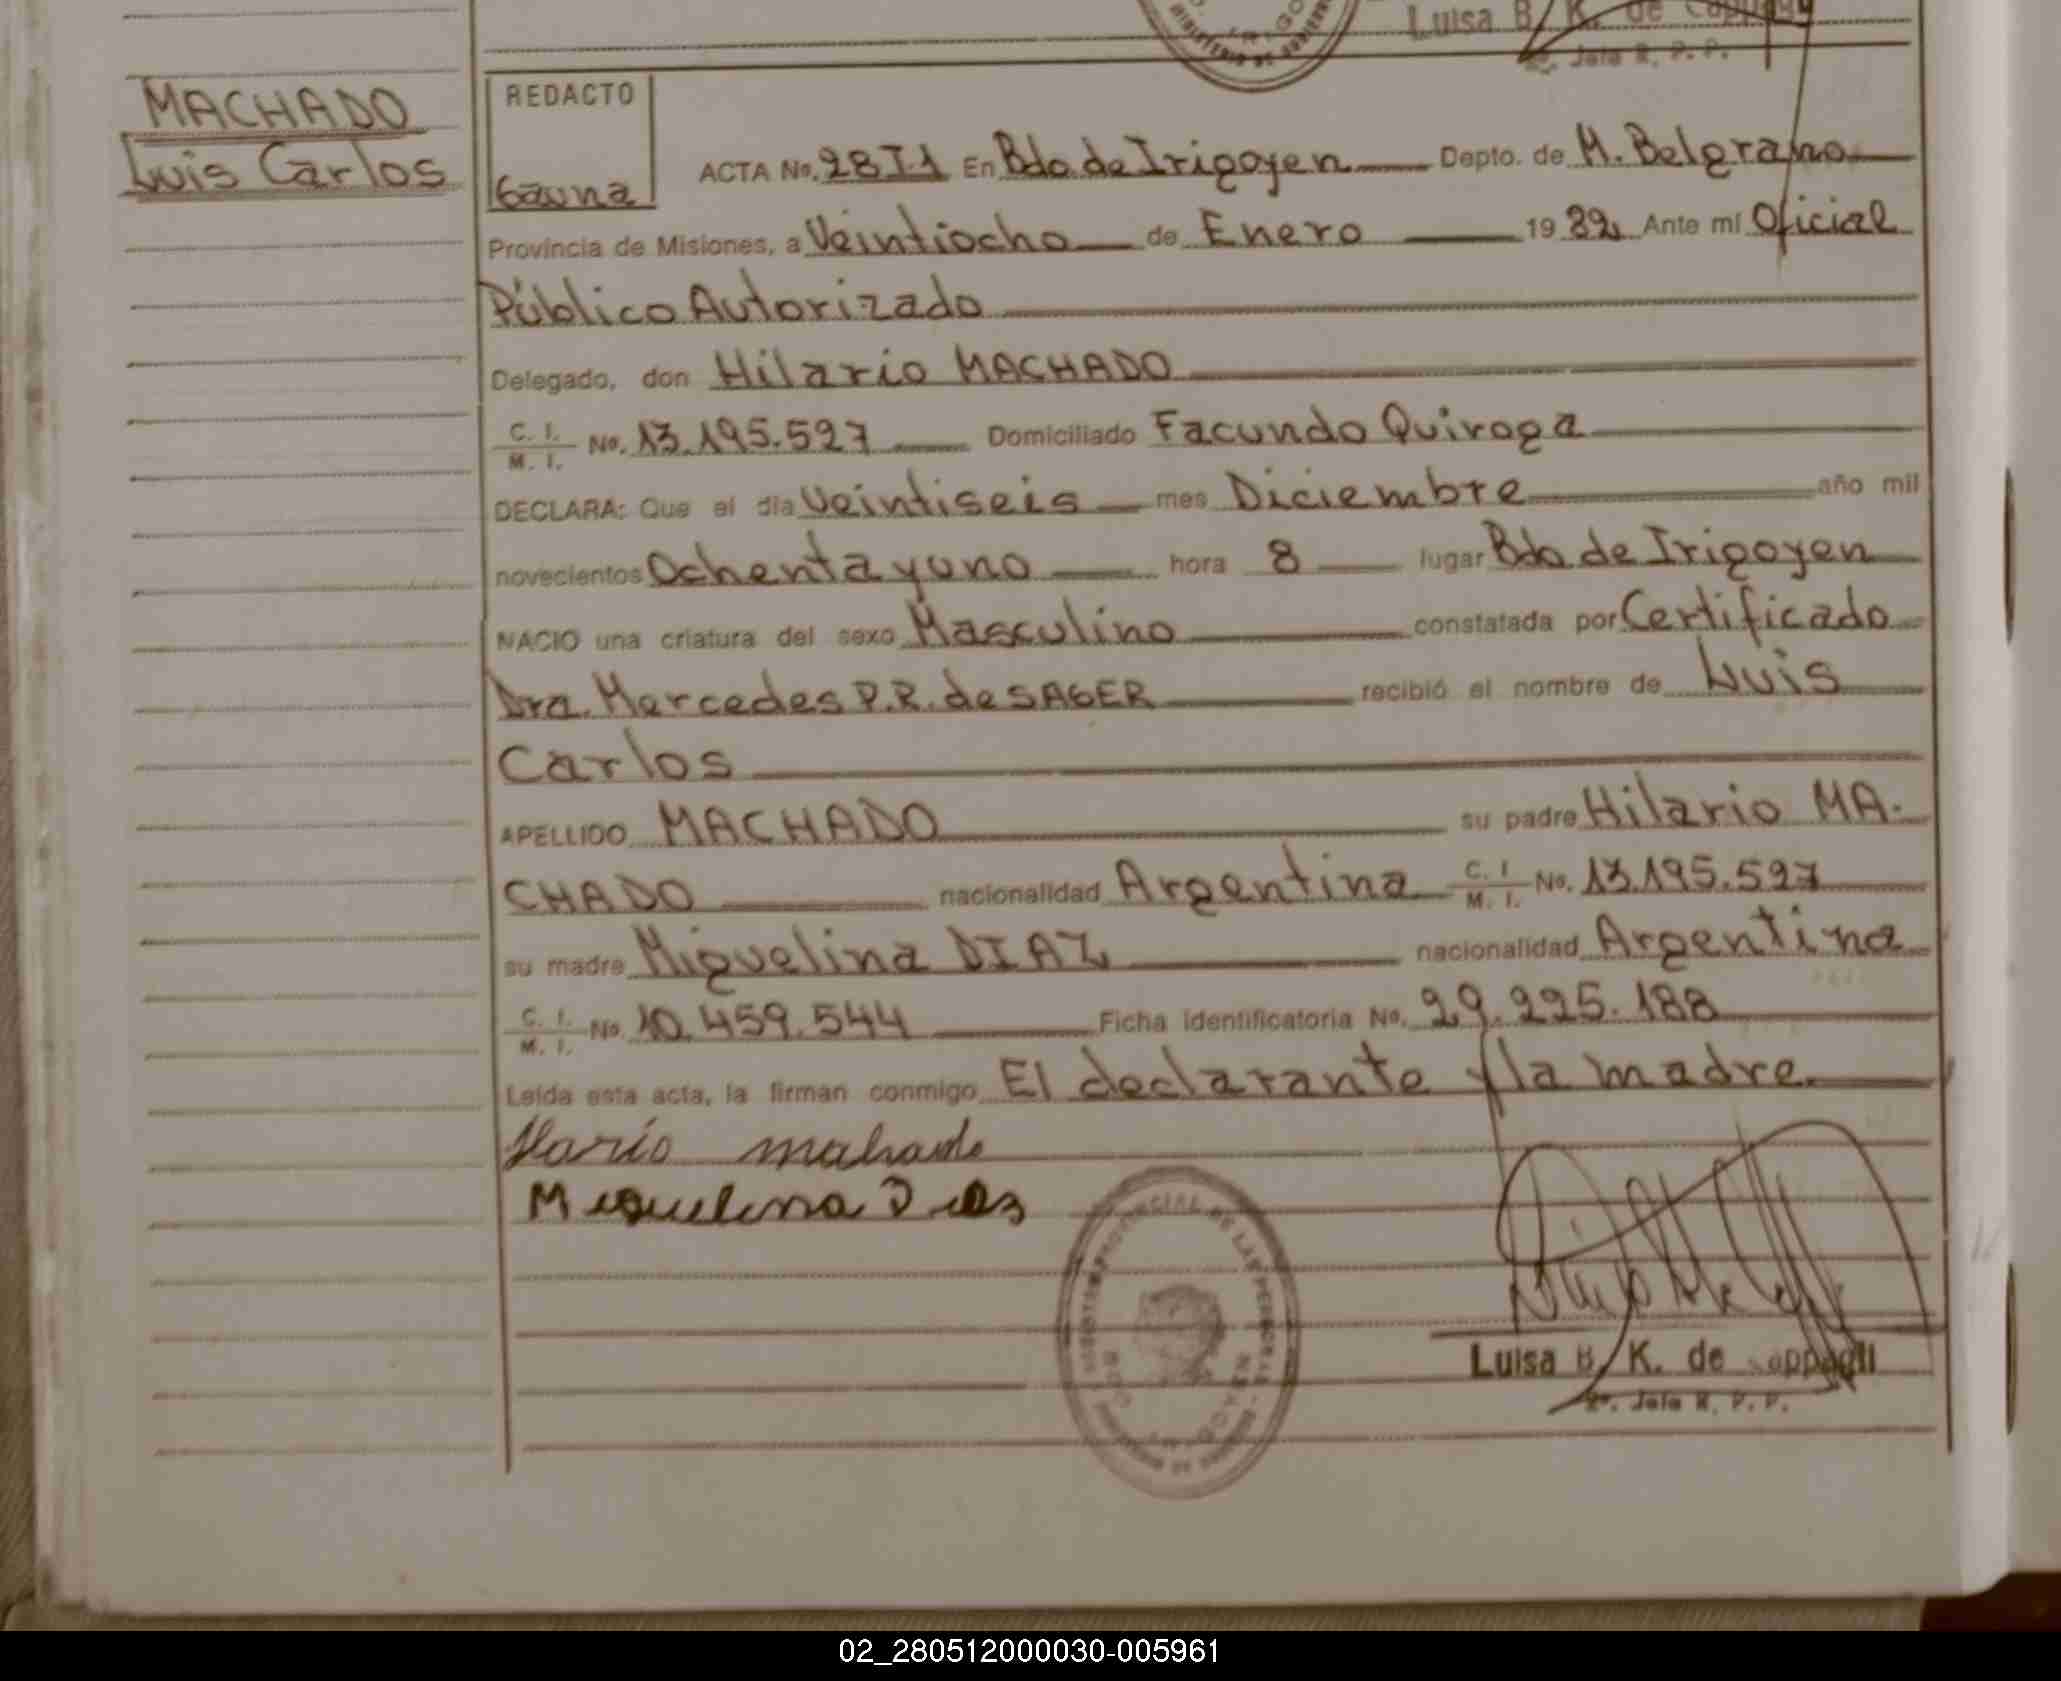 Luisa B. K. de Cappagli
2º. Jefe R. P. P.
MACHADO
Luis Carlos
REDACTO
Gauna
ACTA No. 28 T.1 En Bdo. de Irigoyen Depto. de M. Belgrano
Provincia de Misiones, a Veintiocho de Enero 19 82 Ante mí Oficial
Público Autorizado
Delegado, don Hilario MACHADO
C. I. / M. I. No. 13.195.527 Domiciliado Facundo Quiroga
DECLARA: Que el día Veintiseis mes Diciembre año mil
novecientos Ochenta y uno hora 8 lugar Bdo de Irigoyen
NACIO una criatura del sexo Masculino constatada por Certificado
Dra. Mercedes P.R. de SAGER recibió el nombre de Luis
Carlos
APELLIDO MACHADO su padre Hilario MA-
CHADO nacionalidad Argentina C. I. / M. I. No. 13.195.527
su madre Miguelina DIAZ nacionalidad Argentina
C. I. / M. I. No. 10.459.544 Ficha identificatoria No. 29.225.188
Leída esta acta, la firman conmigo El declarante y la madre.
Miguelina Diaz
PROVINCIAL DE LAS PERSONAS
Luisa B. K. de Cappagli
2º. Jefe R. P. P.
02_280512000030-005961